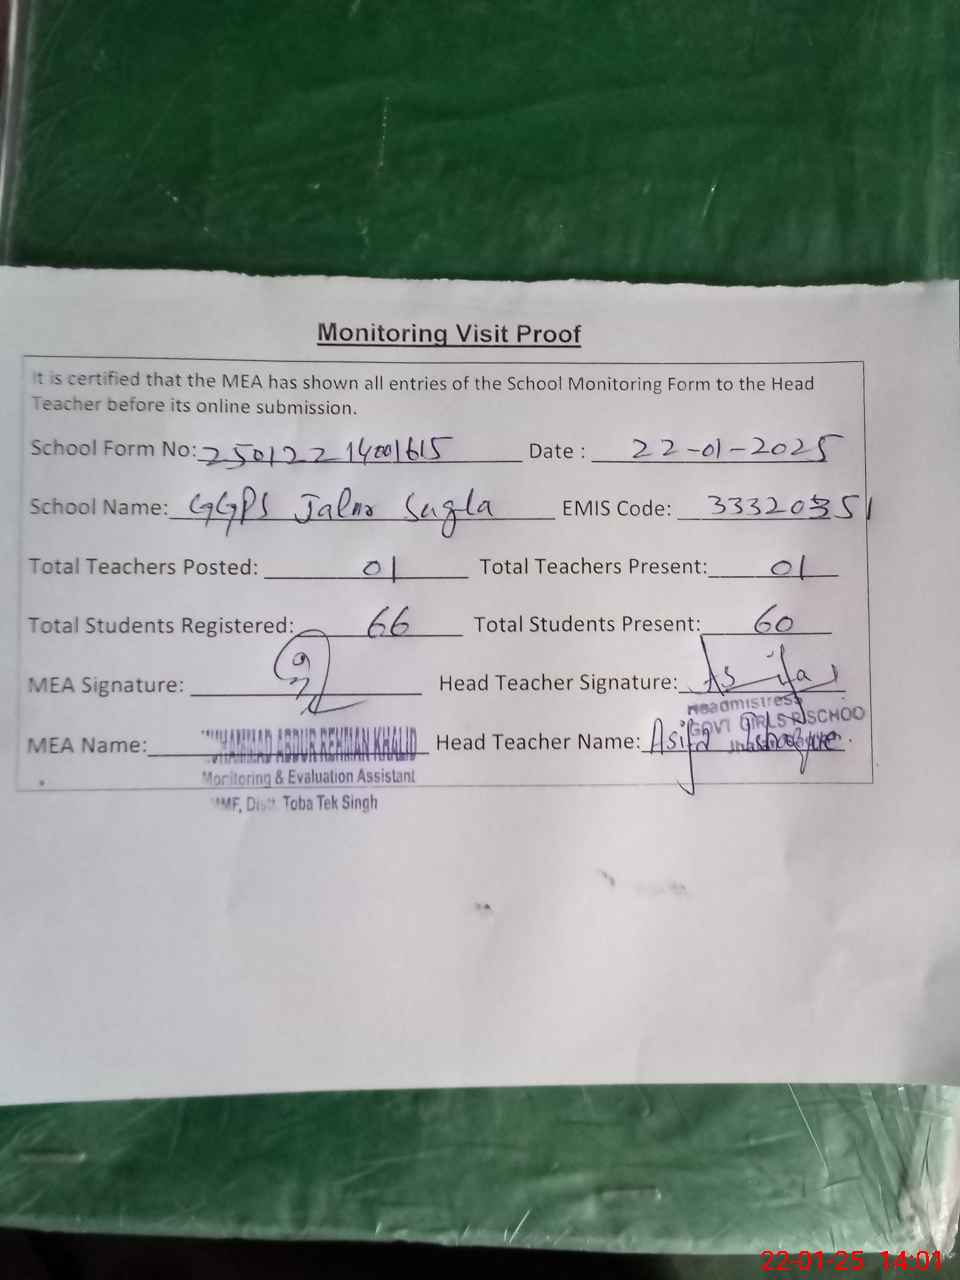 Monitoring Visit Proof
It is certified that the MEA has shown all entries of the School Monitoring Form to the Head
Teacher before its online submission.
School Form No: 25012214001615 Date : 22-01-2025
School Name: GGPS Jalna Sugla EMIS Code: 33320351
Total Teachers Posted: 01 Total Teachers Present: 01
Total Students Registered: 66 Total Students Present: 60
MEA Signature: Head Teacher Signature: Asifa
Headmistress
GOVT GIRLS P/SCHOO
MEA Name: MUHAMMAD ABDUR REHMAN KHALID Head Teacher Name: Asifa
Monitoring & Evaluation Assistant
MF, Distt. Toba Tek Singh
22-01-25 14:01